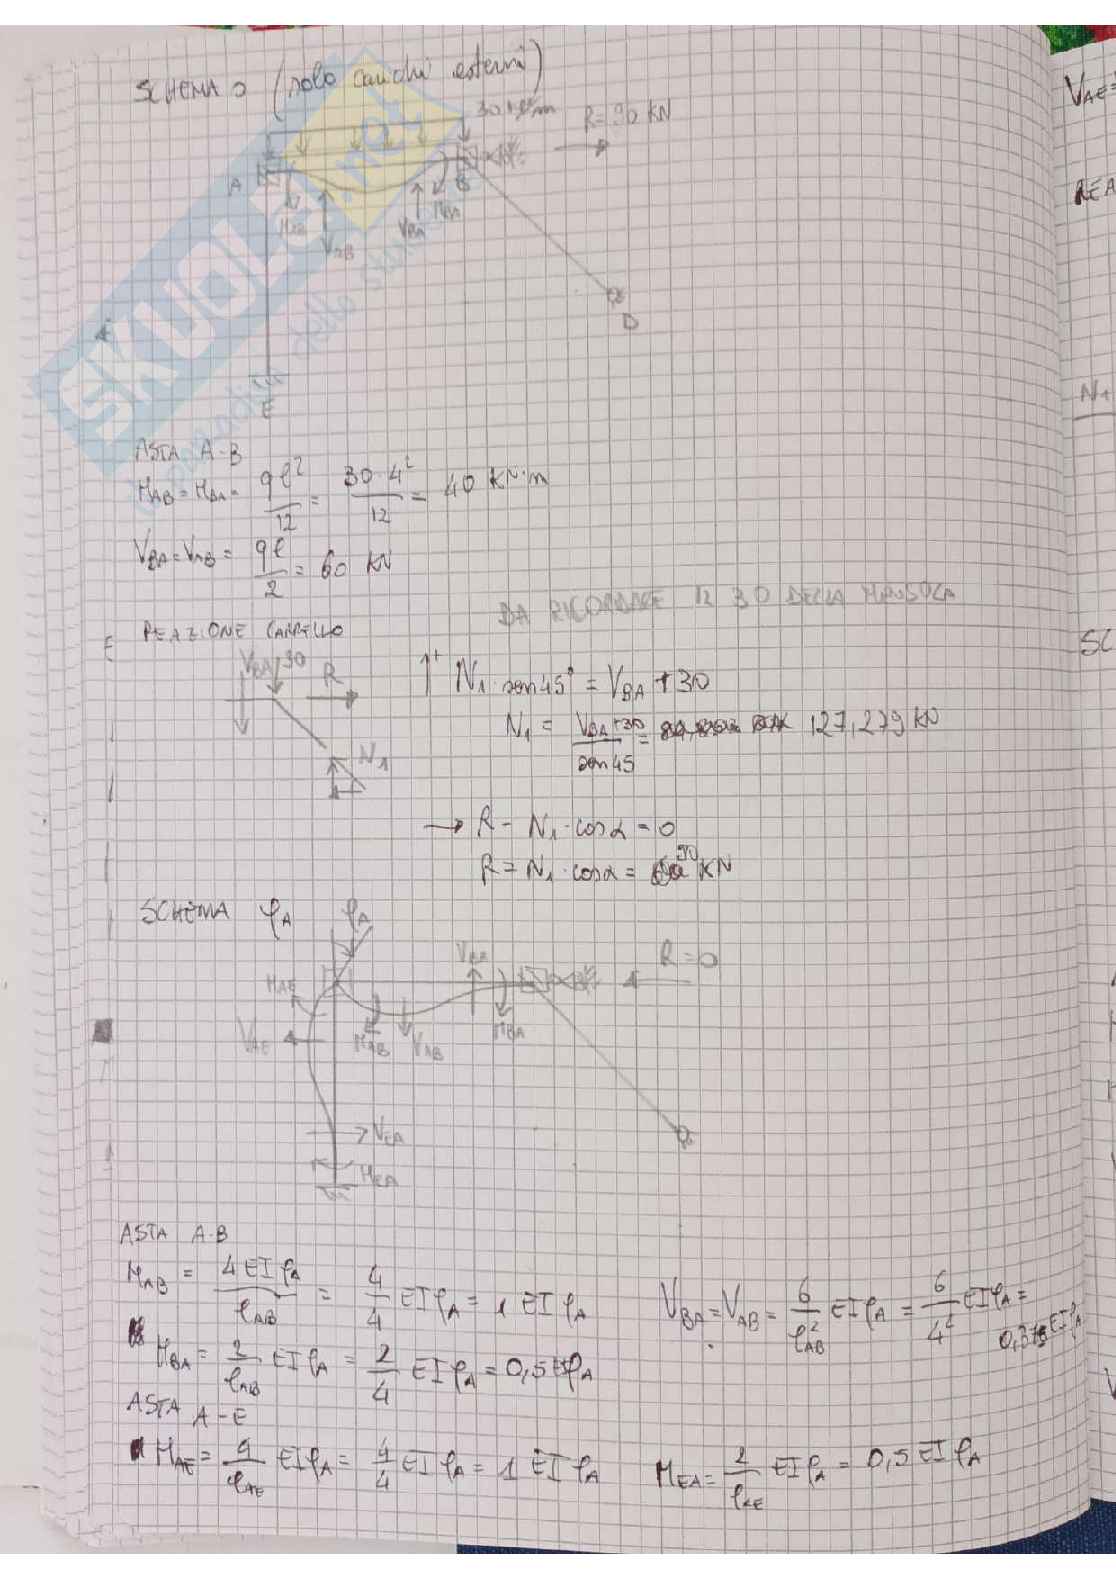 SCHEMA 0 (solo carichi esterni)
30 kN/m
R=90 KN
A
B
M_AB
V_AB
V_BA
M_BA
D
E
ASTA A-B
M_AB = M_BA = qℓ²/12 = 30·4²/12 = 40 KN·m
V_BA = V_AB = qℓ/2 = 60 KN
DA RICORDARE IL 30 DELLA MENSOLA
REAZIONE CARRELLO
V_BA 30 R
N₁
↑+ N₁·sen45° = V_BA + 30
N₁ = V_BA+30/sen45 = 127,279 KN
→ R - N₁·cosα = 0
R = N₁·cosα = 90 KN
SCHEMA φ_A
φ_A
V_BA
R=0
M_AE
V_AE
M_AB
V_AB
M_BA
V_EA
M_EA
ASTA A-B
M_AB = 4EIφ_A/ℓ_AB = 4/4 EIφ_A = 1 EIφ_A
V_BA = V_AB = 6/ℓ²_AB EIφ_A = 6/4² EIφ_A = 0,375 EIφ_A
M_BA = 2/ℓ_AB EIφ_A = 2/4 EIφ_A = 0,5 EIφ_A
ASTA A-E
M_AE = 4/ℓ_AE EIφ_A = 4/4 EIφ_A = 1 EIφ_A
M_EA = 2/ℓ_AE EIφ_A = 0,5 EIφ_A
V_AE=
REA
N₁
SC
SKUOLA.net